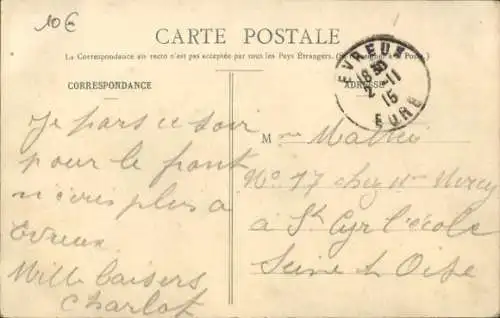 10€
CARTE POSTALE
La Correspondance au recto n'est pas acceptée par tous les Pays Étrangers. (Se renseigner à la Poste.)
CORRESPONDANCE
ADRESSE
EVREUX
18 30
2 - 11
15
EURE
Je pars ce soir
pour le front
n'écris plus à
Evreux
Mille baisers
Charlot
Mme Mathieu
No 17 chez Mr
à St Cyr l'école
Seine et Oise